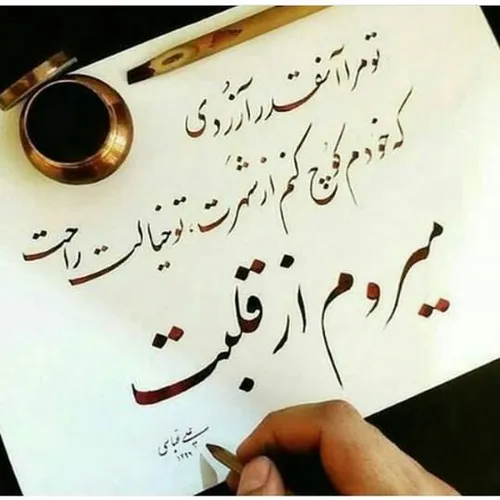 تو مرا آنقدر آزردی
که خودم کوچ کنم از شهرت، تو خیالت راحت
میروم از قلبت
علی عباسی
۱۳۹۹